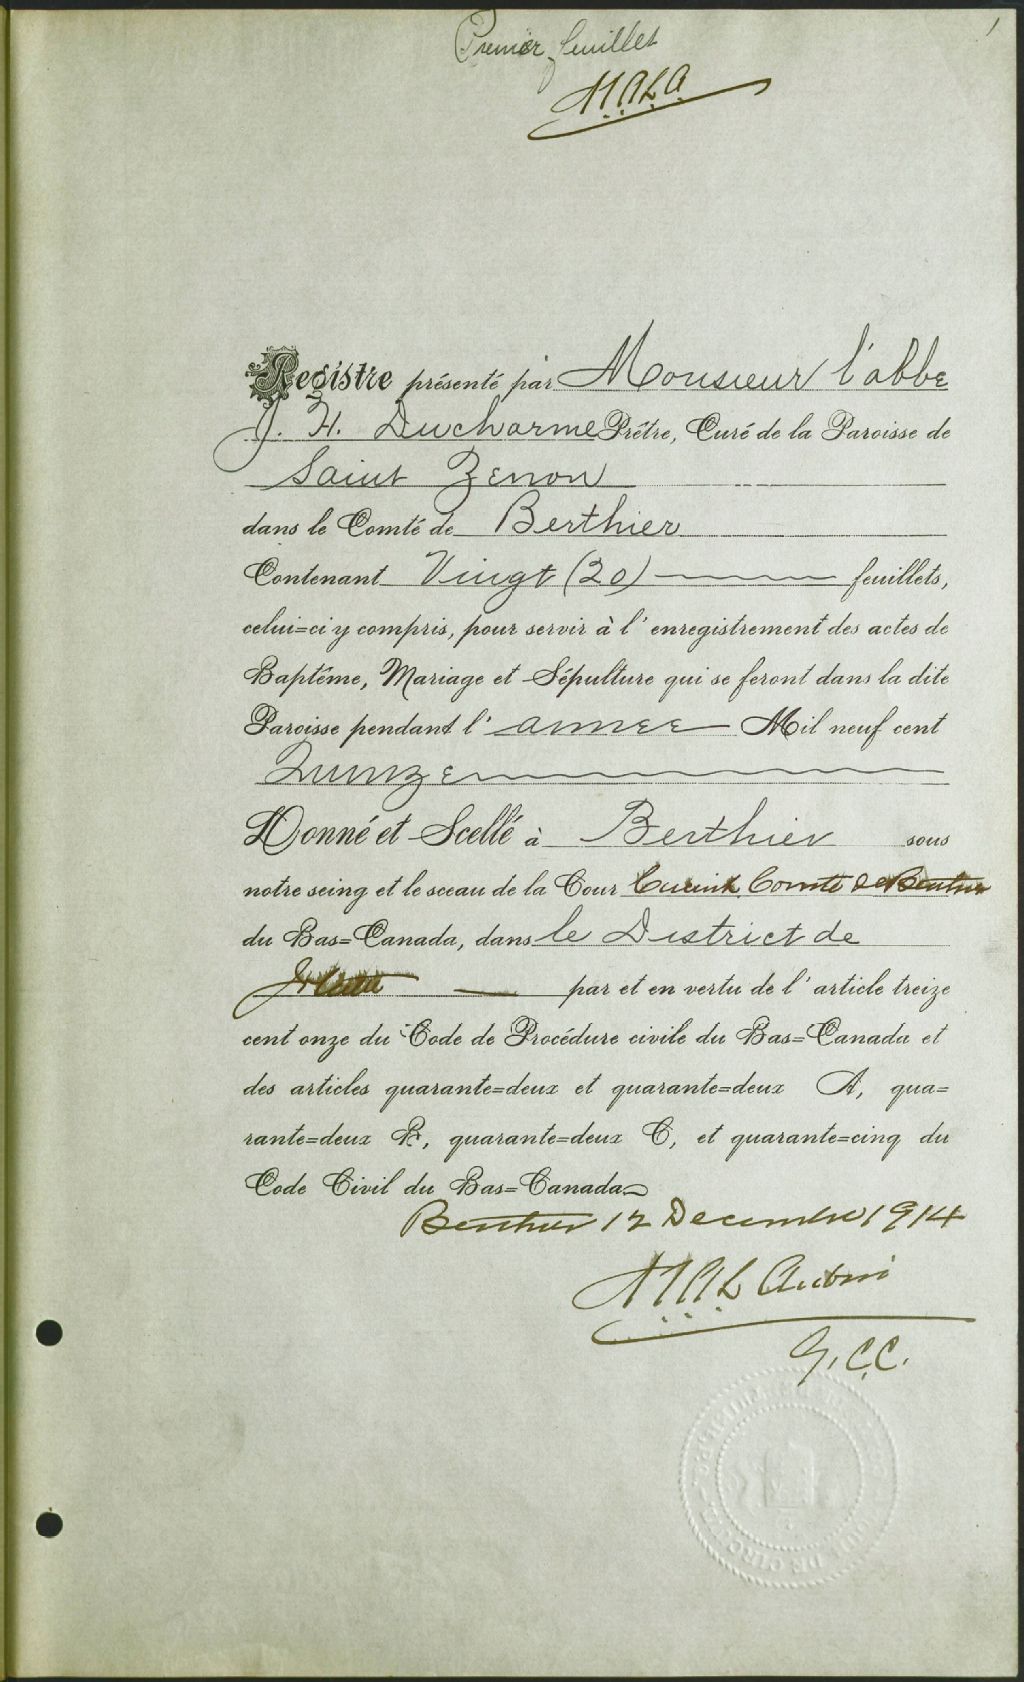 1
Premier feuillet
M.A.L.A
Registre présenté par Monsieur l'abbe
J. H. Ducharme Prêtre, Curé de la Paroisse de
Saint Zenon
dans le Comté de Berthier
Contenant Vingt (20) feuillets,
celui=ci y compris, pour servir à l'enregistrement des actes de
Baptême, Mariage et Sépulture qui se feront dans la dite
Paroisse pendant l'annee Mil neuf cent
Quinze
Donné et Scellé à Berthier sous
notre seing et le sceau de la Cour Circuit Comté de Berthier
du Bas=Canada, dans le District de
Joliette par et en vertu de l'article treize
cent onze du Code de Procédure civile du Bas=Canada et
des articles quarante=deux et quarante=deux A, qua=
rante=deux B, quarante=deux C, et quarante=cinq du
Code Civil du Bas=Canada
Berthier 12 Decembre 1914
M.A.L. Aubin
G.C.C.